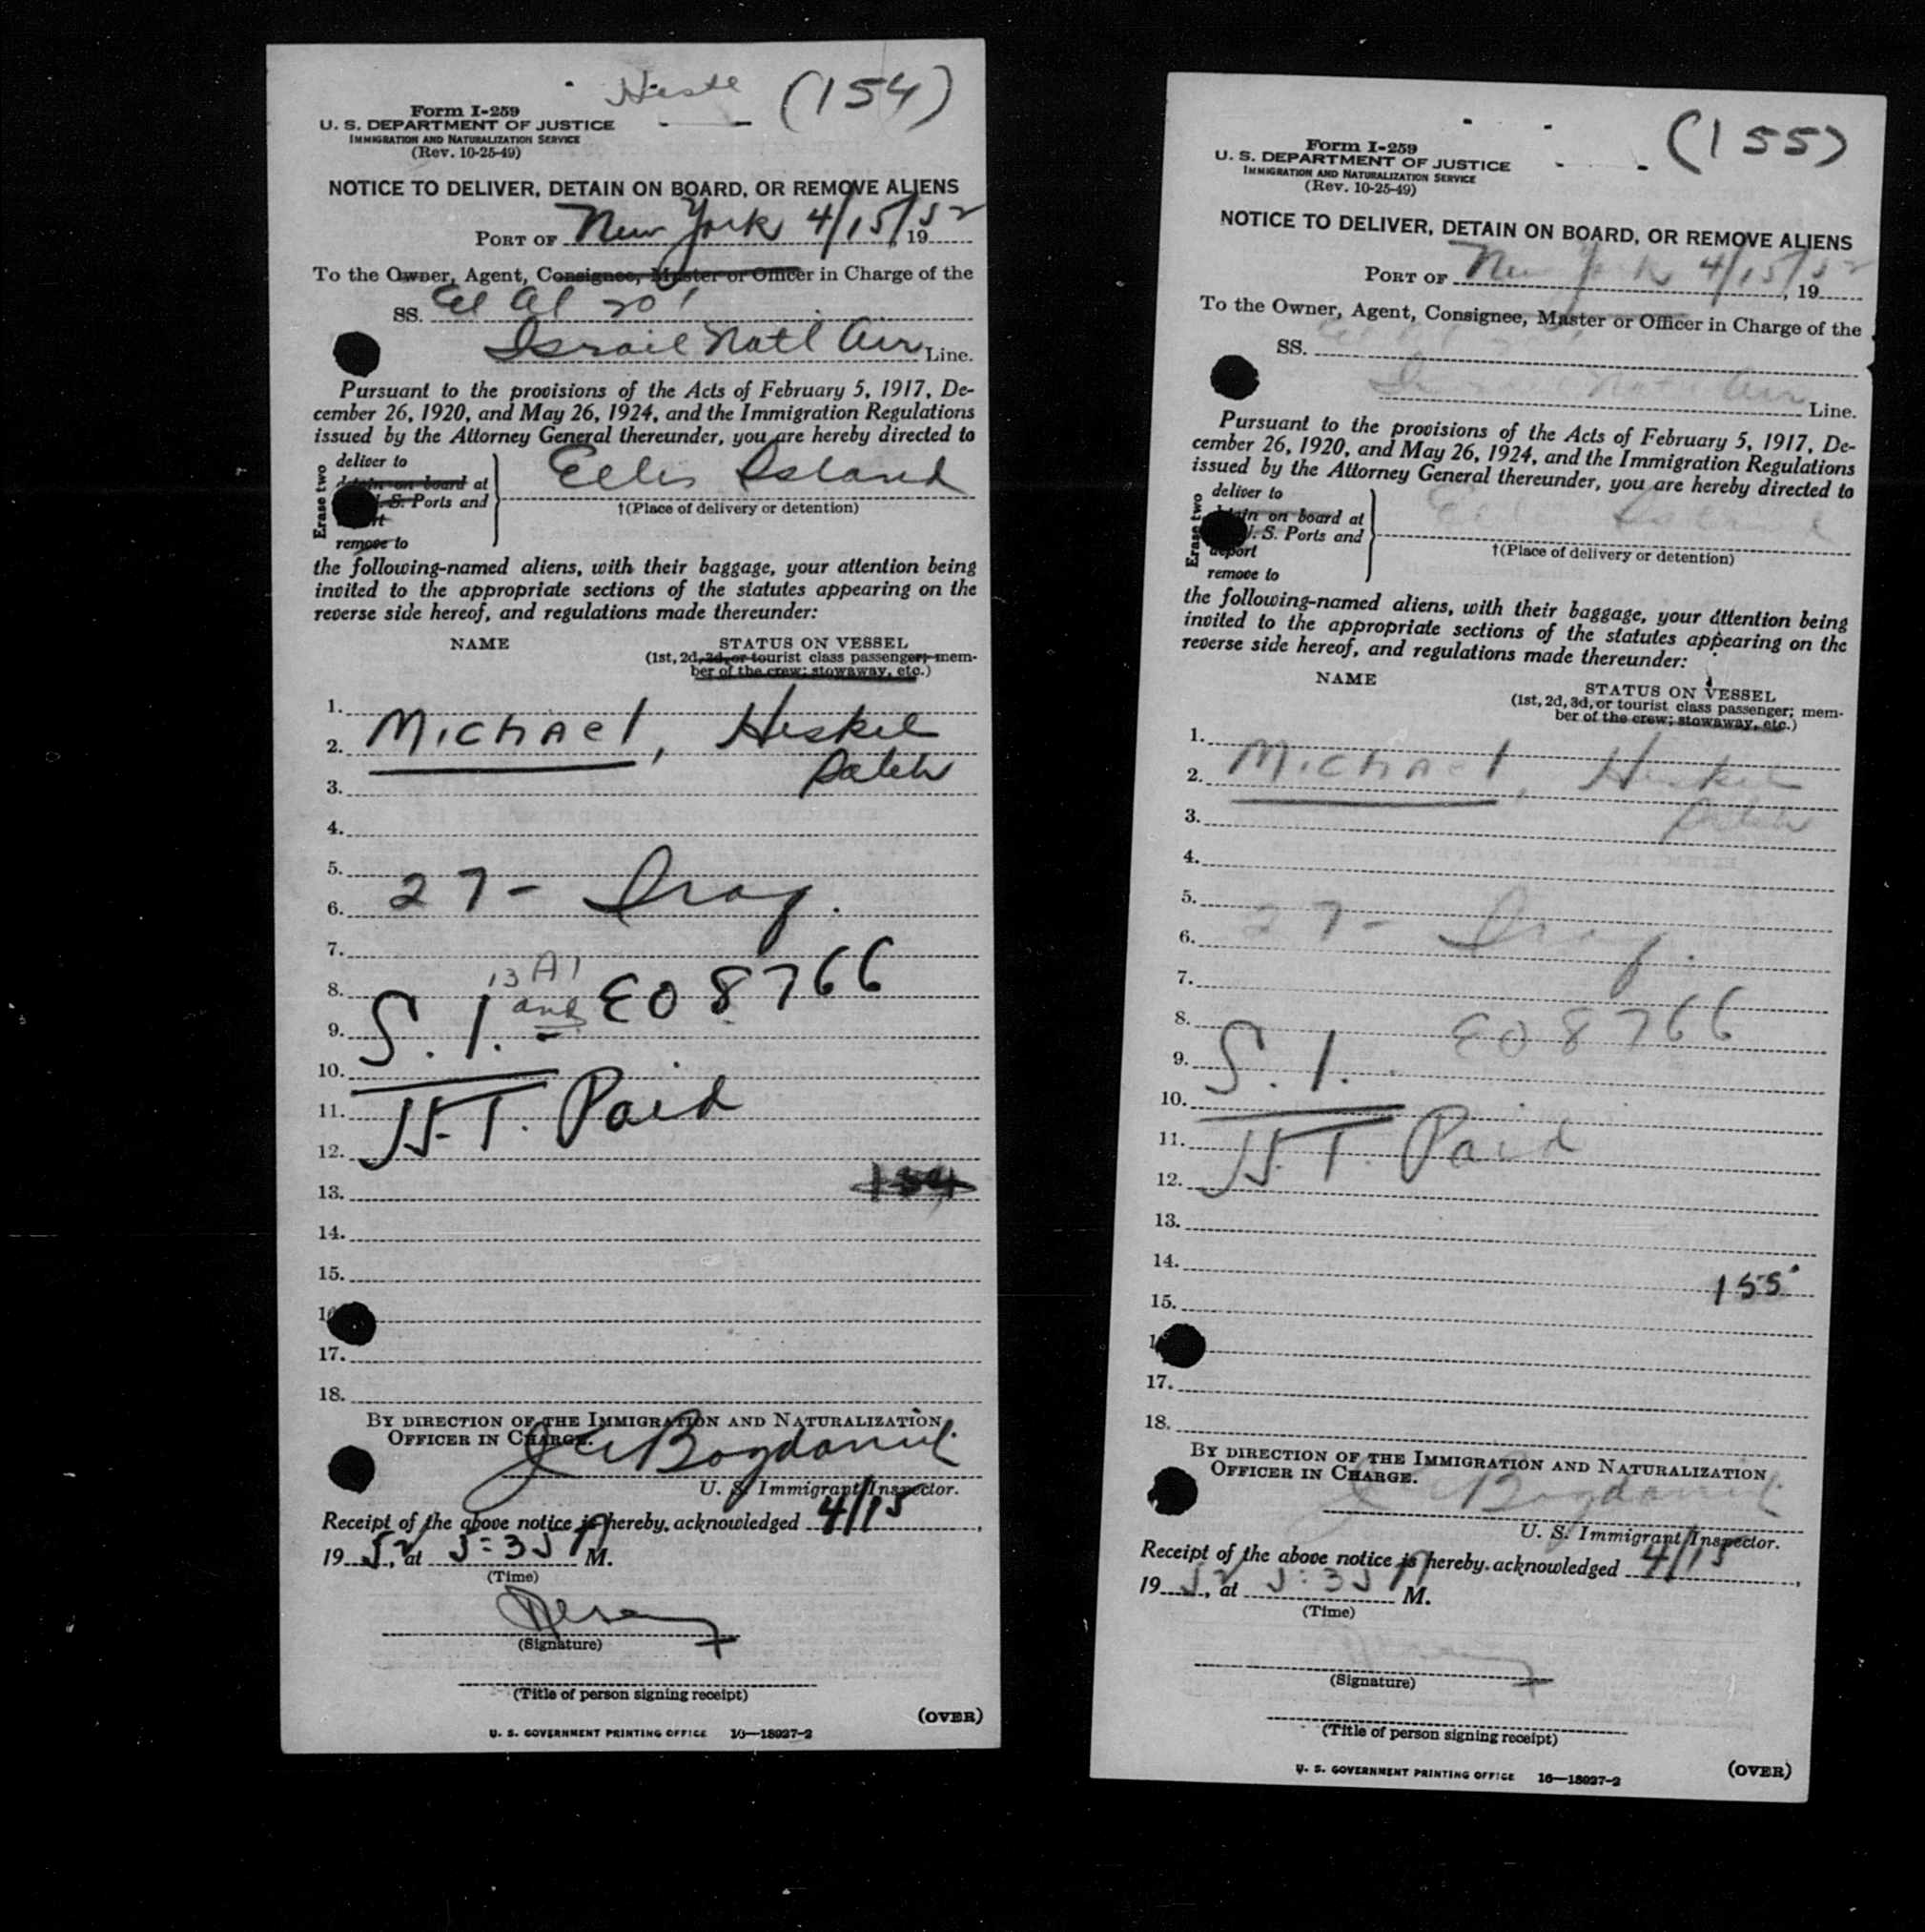 (154)
Form I-259
U. S. DEPARTMENT OF JUSTICE
IMMIGRATION AND NATURALIZATION SERVICE
(Rev. 10-25-49)
NOTICE TO DELIVER, DETAIN ON BOARD, OR REMOVE ALIENS
PORT OF New York 4/15/52, 19
To the Owner, Agent, Consignee, Master or Officer in Charge of the
SS. El Al 201
Israil Natl Air Line.
Pursuant to the provisions of the Acts of February 5, 1917, De-
cember 26, 1920, and May 26, 1924, and the Immigration Regulations
issued by the Attorney General thereunder, you are hereby directed to
Erase two
deliver to
on board at
S. Ports and
remove to
Ellis Island
†(Place of delivery or detention)
the following-named aliens, with their baggage, your attention being
invited to the appropriate sections of the statutes appearing on the
reverse side hereof, and regulations made thereunder:
NAME STATUS ON VESSEL
(1st, 2d, 3d, or tourist class passenger; mem-
ber of the crew; stowaway, etc.)
1.
2. Michael, Heskel
3. Saleh
4.
5.
6. 27- Iraq.
7.
13 A1
8. and E08766
9. S. I. -
10.
11. H.T. Paid
12.
13. 154
14.
15.
17.
18.
BY DIRECTION OF THE IMMIGRATION AND NATURALIZATION
OFFICER IN CHARGE.
U. S. Immigrant Inspector.
Receipt of the above notice is hereby acknowledged 4/15,
1952, at 5:35 P M.
(Time)
(Signature)
(Title of person signing receipt)
(OVER)
U. S. GOVERNMENT PRINTING OFFICE 16—18927-2
(155)
Form I-259
U. S. DEPARTMENT OF JUSTICE
IMMIGRATION AND NATURALIZATION SERVICE
(Rev. 10-25-49)
NOTICE TO DELIVER, DETAIN ON BOARD, OR REMOVE ALIENS
PORT OF New York 4/15/52, 19
To the Owner, Agent, Consignee, Master or Officer in Charge of the
SS. El Al 201
Israil Natl Air Line.
Pursuant to the provisions of the Acts of February 5, 1917, De-
cember 26, 1920, and May 26, 1924, and the Immigration Regulations
issued by the Attorney General thereunder, you are hereby directed to
Erase two
deliver to
on board at
S. Ports and
deport
remove to
Ellis Island
†(Place of delivery or detention)
the following-named aliens, with their baggage, your attention being
invited to the appropriate sections of the statutes appearing on the
reverse side hereof, and regulations made thereunder:
NAME STATUS ON VESSEL
(1st, 2d, 3d, or tourist class passenger; mem-
ber of the crew; stowaway, etc.)
1.
2. Michael, Heskel
3. Saleh
4.
5.
6. 27- Iraq.
7.
8. E08766
9. S. I.
10.
11. H.T. Paid
12.
13.
14.
155
15.
17.
18.
BY DIRECTION OF THE IMMIGRATION AND NATURALIZATION
OFFICER IN CHARGE.
U. S. Immigrant Inspector.
Receipt of the above notice is hereby acknowledged 4/15,
1952, at 5:35 P M.
(Time)
(Signature)
(Title of person signing receipt)
(OVER)
U. S. GOVERNMENT PRINTING OFFICE 16—18927-2